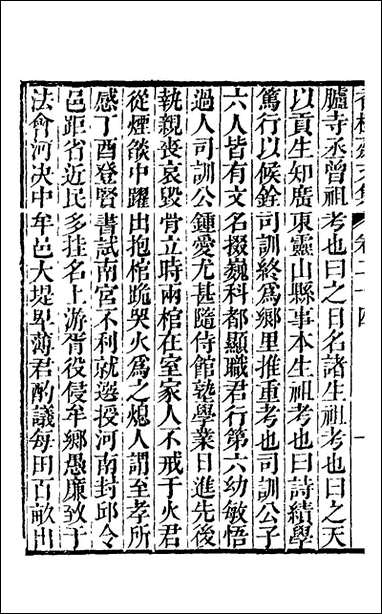 臚寺丞曾祖考也曰之日名諸生祖考也曰之天
以貢生知廣東靈山縣事本生祖考也曰詩績學
篤行以候銓司訓終爲鄉里推重考也司訓公子
六人皆有文名掇巍科都顯職君行第六幼敏悟
過人司訓公鍾愛尤甚隨侍館塾學業日進先後
執親喪哀毀骨立時兩棺在室家人不戒于火君
從煙燄中躍出抱棺跪哭火爲之熄人謂至孝所
感丁酉登賢書試南宮不利就選授河南封邱令
邑距省近民多挂名上游胥役侵牟鄉愚廉致于
法會河決中牟邑大堤卑薄君酌議每田百畝出